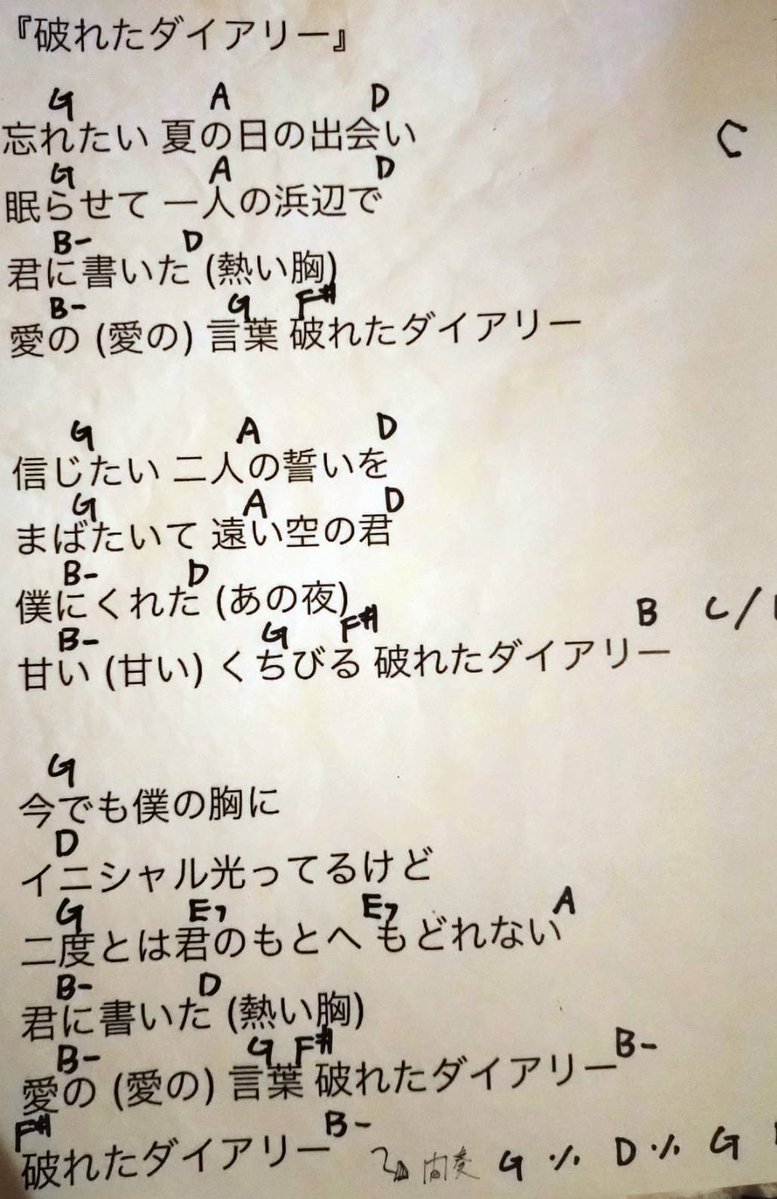 『破れたダイアリー』
G A D
忘れたい 夏の日の出会い
C
G A D
眠らせて 一人の浜辺で
B- D
君に書いた (熱い胸)
B- G F#
愛の (愛の) 言葉 破れたダイアリー
G A D
信じたい 二人の誓いを
G A D
まばたいて 遠い空の君
B- D
僕にくれた (あの夜)
B- G F# B C/
甘い (甘い) くちびる 破れたダイアリー
G
今でも僕の胸に
D
イニシャル光ってるけど
G E7 E7 A
二度とは君のもとへ もどれない
B- D
君に書いた (熱い胸)
B- G F# B-
愛の (愛の) 言葉 破れたダイアリー
F# B-
破れたダイアリー
間奏 G % D % G